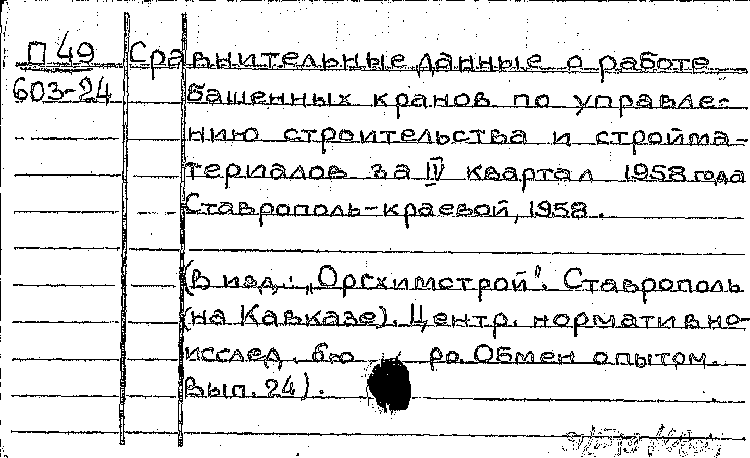 П 49 Сравнительные данные о работе
603-24 башенных кранов по управле-
нию строительства и стройма-
териалов за IV квартал 1958 года
Ставрополь-краевой, 1958.
(В изд.: "Оргхимстрой". Ставрополь
(на Кавказе). Центр. нормативно-
исслед. бю ро. Обмен опытом.
Вып. 24).